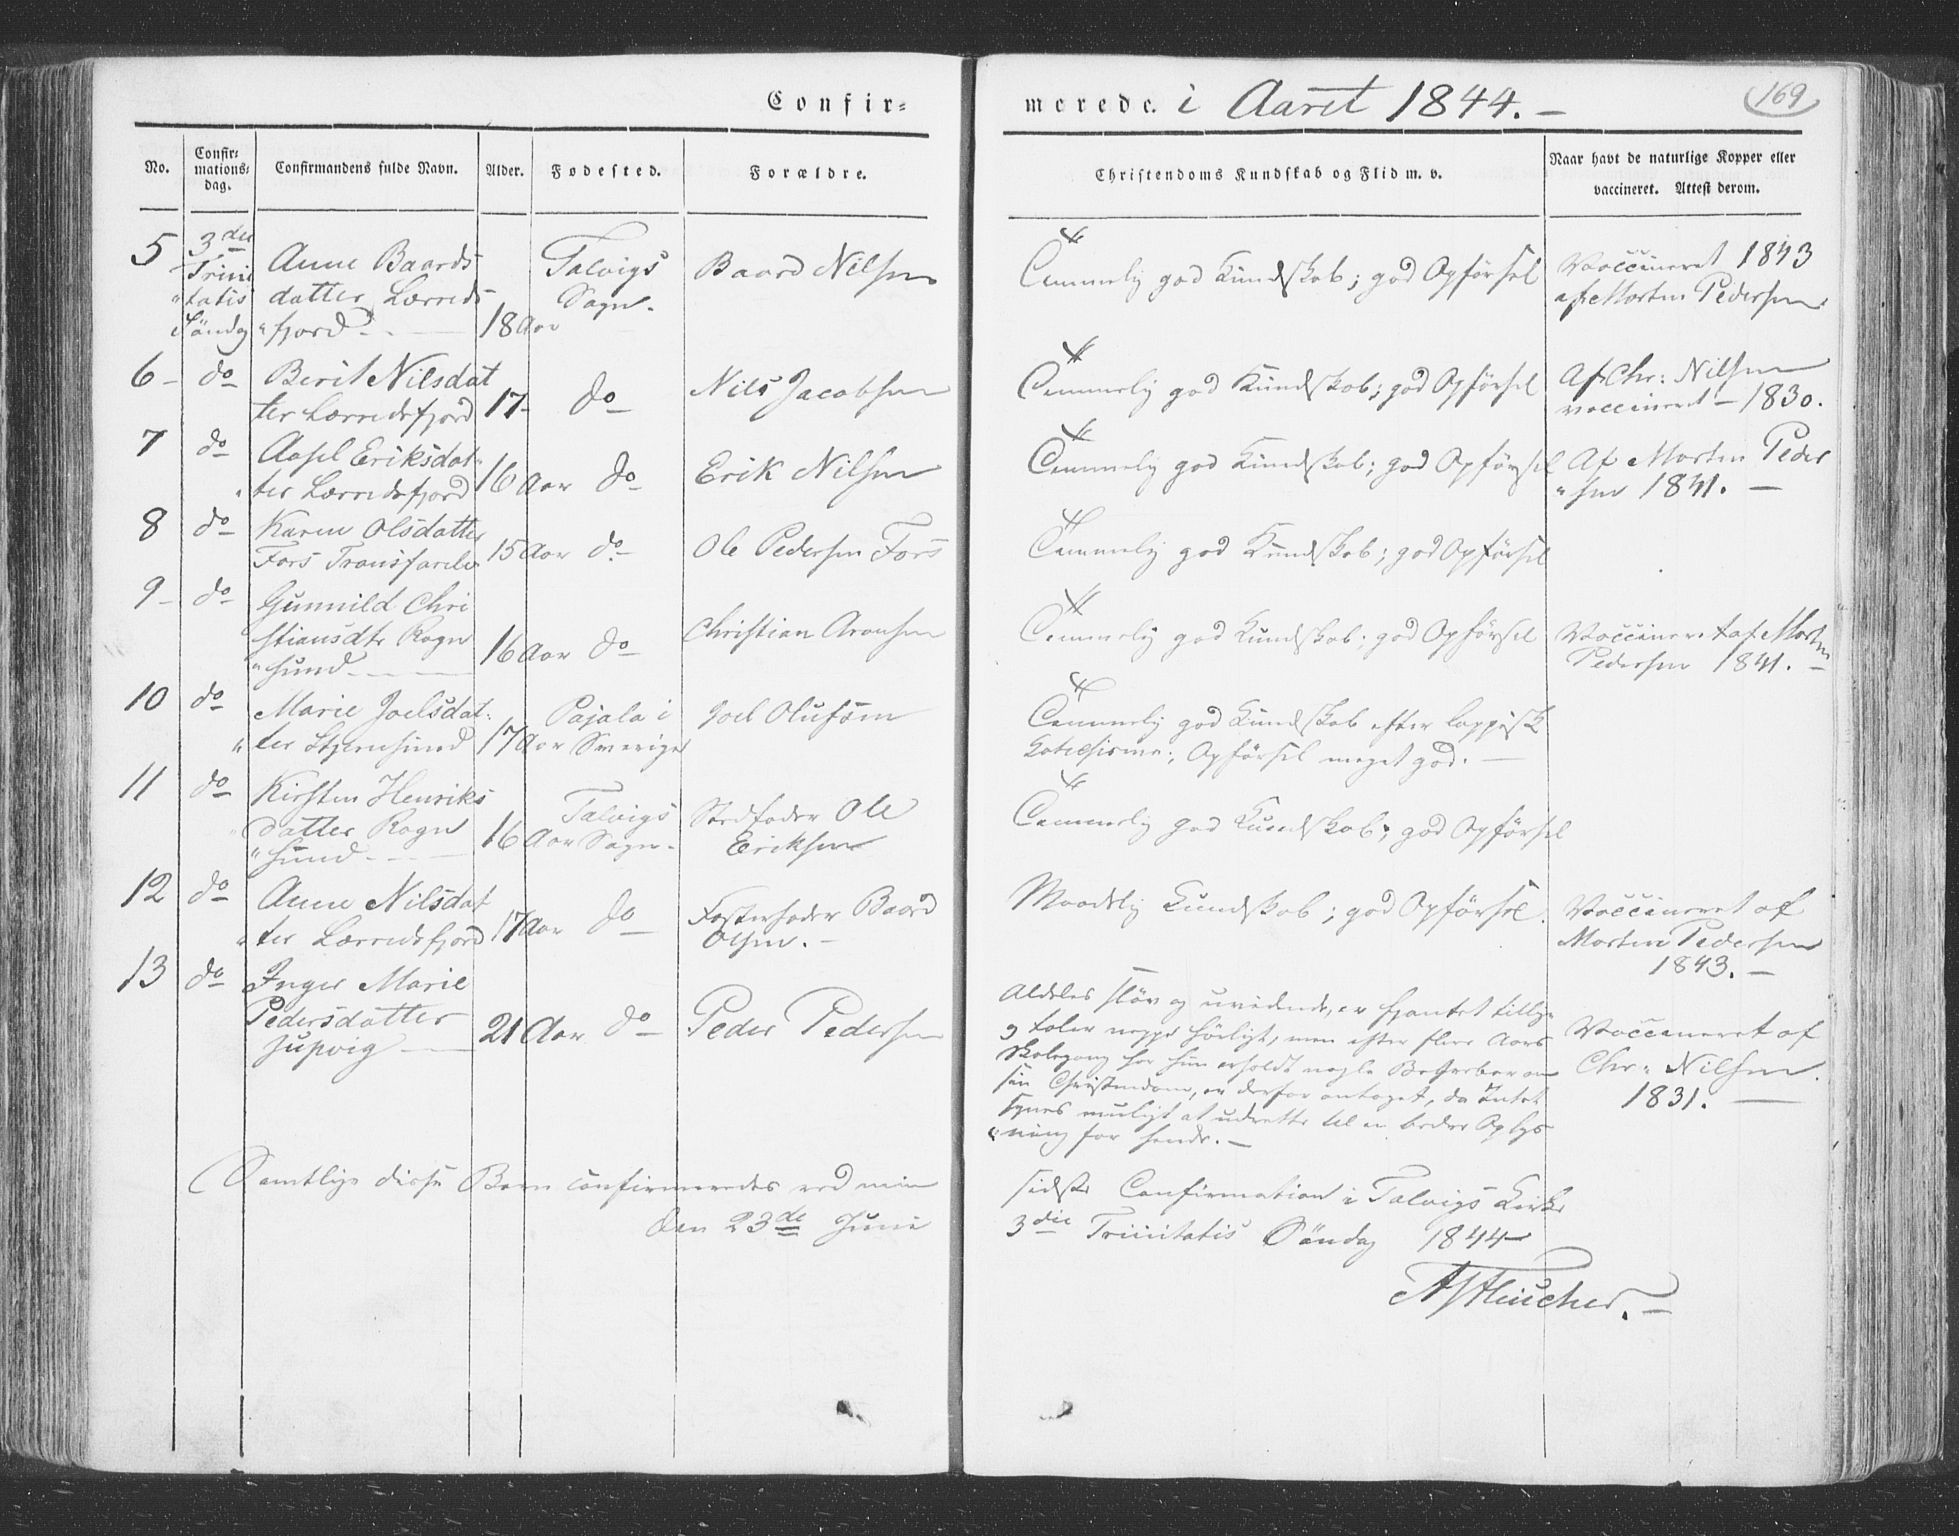 Confir= merede. i Aaret 1844. –
169
No.
Confir=
mations=
dag.
Confirmandens fulde Navn.
Alder.
Fødested.
Forældre.
Christendoms Kundskab og Flid m. v.
Naar havt de naturlige Kopper eller
vaccineret. Attest derom.
5
3die
Trini
"tatis
Söndag
Anne Baards
datter Lærreds-
"fjord
18 Aar
Talvigs
Sogn.
Baard Nilsen
Temmelig god Kundskab; god Opförsel
Vaccineret 1843
af Morten Pedersen
6 – do
Berit Nilsdat
ter Lærredsfjord
17–
do
Nils Jacobsen
Temmelig god Kundskab; god Opförsel
Af Chr: Nilsen
vaccineret – 1830.
7
do
Aasel Eriksdat-
"ter Lærredsfjord
16 Aar
do
Erik Nilsen
Temmelig god Kundskab; god Opförsel
Af Morten Peder
"sen 1841. –
8
do
Karen Olsdatter
Fors Transfarelv
15 Aar
do
Ole Pedersen Fors
Temmelig god Kundskab; god Opförsel
9 – do
Gunnild Chri
stiansdtr Rogn
"sund
16 Aar
do
Christian Aronsen
Temmelig god Kundskab; god Opförsel
Vaccineret af Morten
Pedersen 1841. –
10
do
Marie Joelsdat-
"ter Stjernsund
17 Aar
Pajala i
Sverige
Joel Olufsen
Temmelig god Kundskab efter lappisk
Catechisme; Opförsel meget god. –
11
do
Kirsten Henriks
datter Rogn
"sund
16 Aar
Talvigs
Sogn.
Stedfader Ole
Eriksen
Temmelig god Kundskab; god Opförsel
12
do
Anne Nilsdat
"ter Lærredsfjord
17 Aar
do
Fosterfader Baard
Olsen. –
Maadelig Kundskab; god Opförsel.
Vaccineret af
Morten Pedersen
1843. –
13
do
Inger Marie
Pedersdatter
Jupvig
21 Aar
do
Peder Pedersen
Aldeles slöv og uvidende, er fjantet tillige
og taler neppe hörligt, men efter flere Aars
Skolegang har hun erholdt nogle Begreber om
sin Christendom, er derfor antaget, da Intet
synes muligt at udrette til en bedre Oplys
"ning for hende. –
Vaccineret af
Chr: Nilsen.
1831. –
Samtlige disse Börn confirmeredes ved min sidste Confirmation i Talvigs Kirke
den 23de Juni 3die Trinitatis Söndag 1844